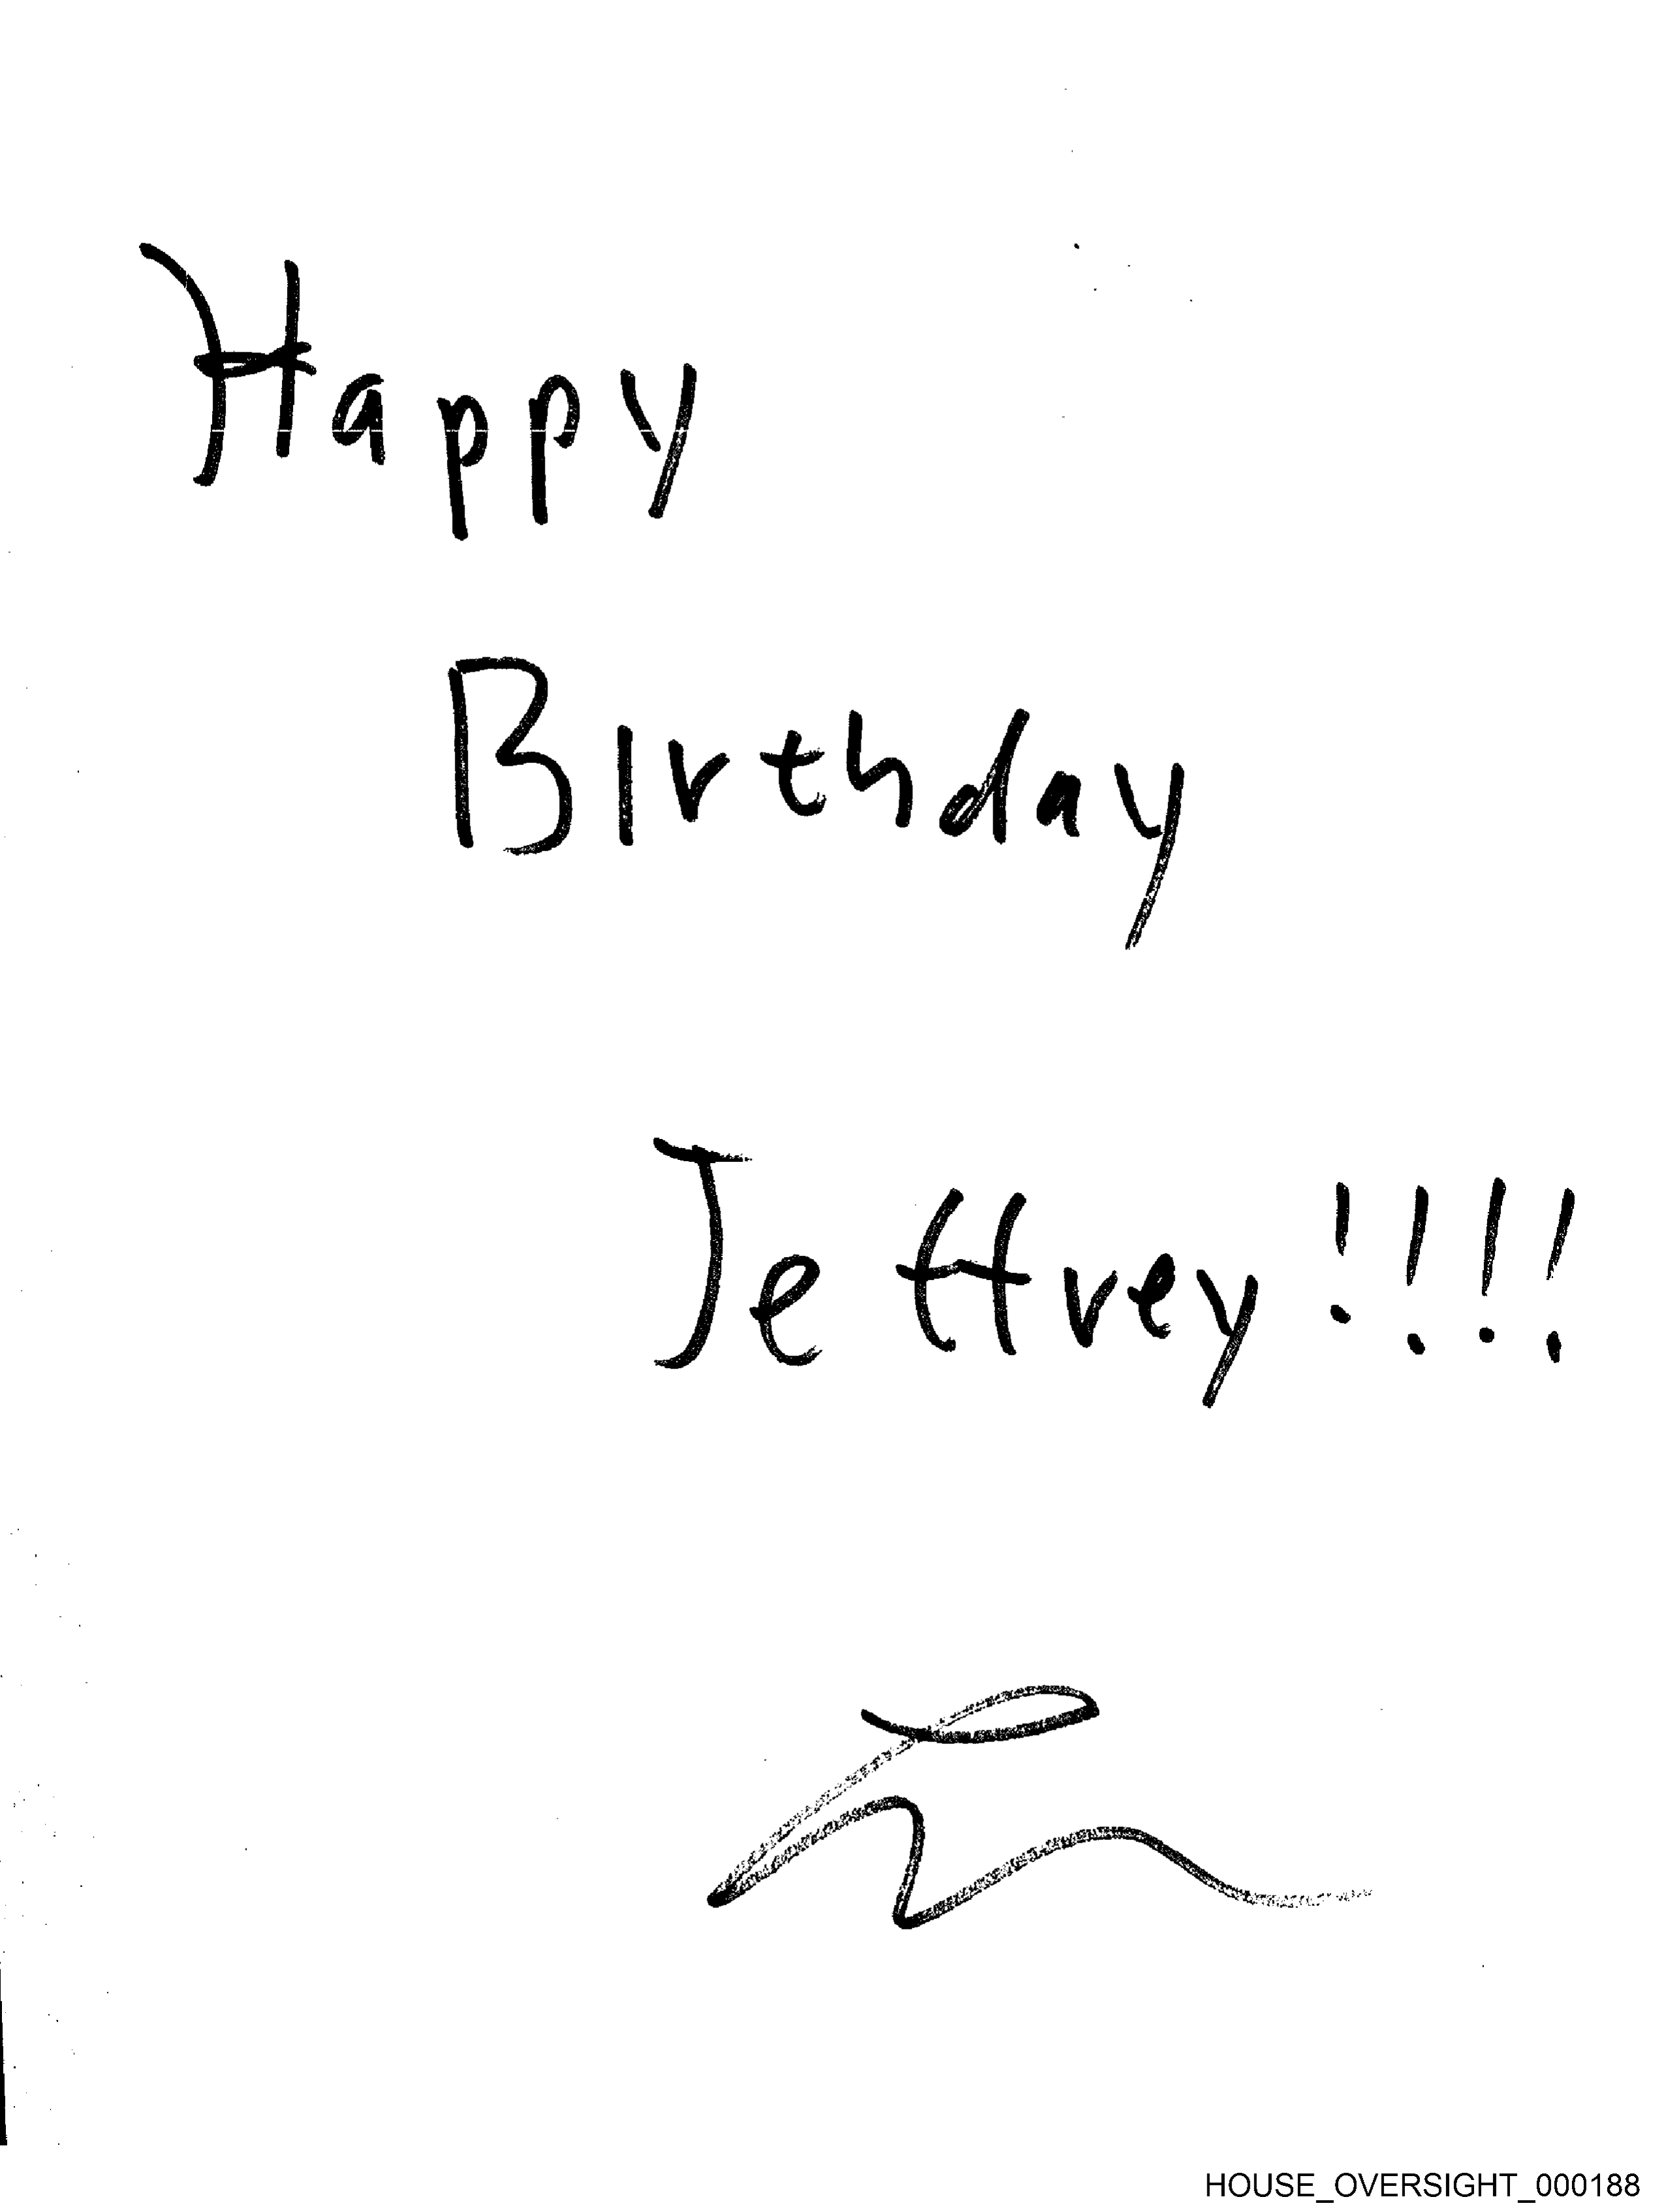 Happy
Birthday
Jeffrey!!!!
HOUSE_OVERSIGHT_000188